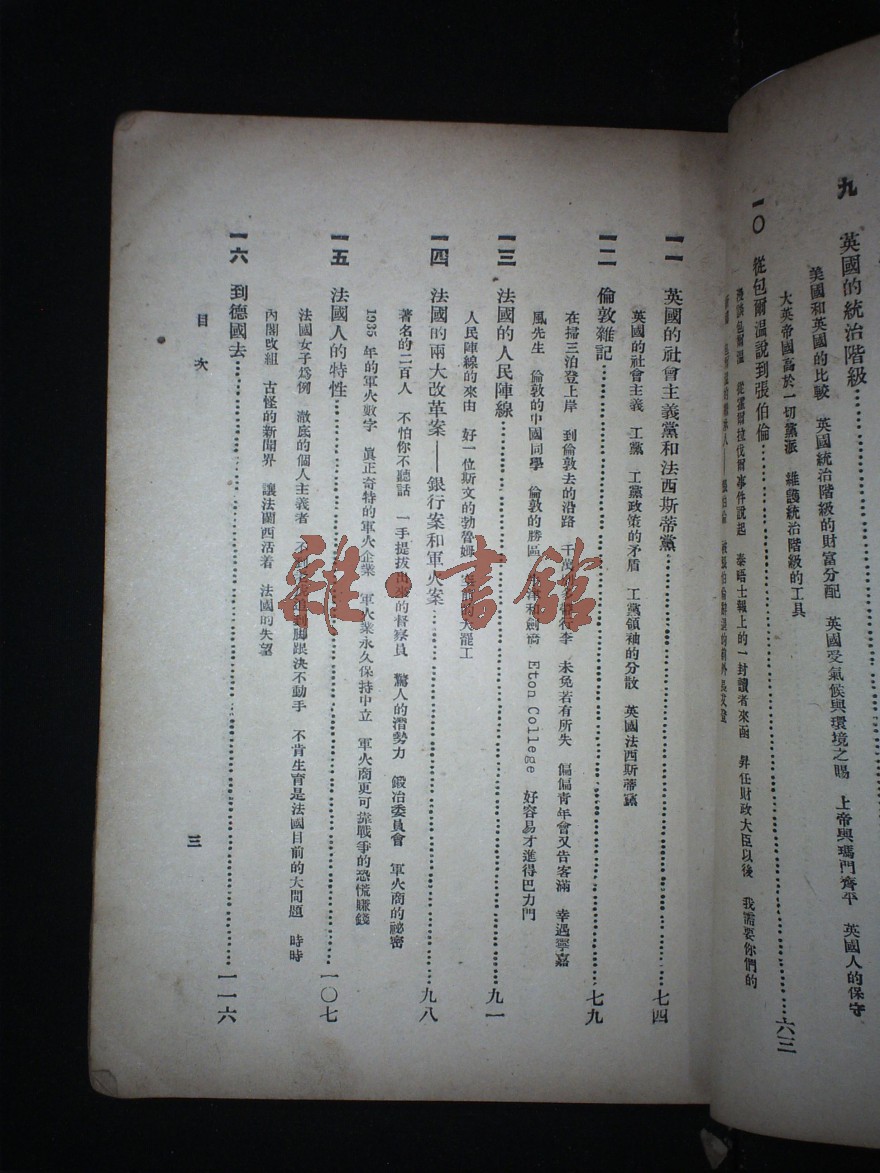 九　英國的統治階級……
美國和英國的比較　英國統治階級的財富分配　英國受氣候與環境之賜　上帝與瑪門齊平　英國人的保守
大英帝國高於一切黨派　維護統治階級的工具
一〇　從包爾温說到張伯倫……六三
漫談包爾温　從霍爾拉伐爾事件說起　泰晤士報上的一封讀者來函　昇任財政大臣以後　我需要你們的
一一　英國的社會主義黨和法西斯蒂黨……七四
英國的社會主義　工黨　工黨政策的矛盾　工黨領袖的分散　英國法西斯蒂黨
一二　倫敦雜記……七九
在掃三泊登上岸　到倫敦去的沿路　千萬　行李　未免若有所失　偏偏青年會又告客滿　幸遇寧嘉
風先生　倫敦的中國同學　倫敦的勝區　牛津和劍橋　Eton College　好容易才進得巴力門
一三　法國的人民陣線……九一
人民陣線的來由　好一位斯文的勃魯姆　的大罷工
一四　法國的兩大改革案——銀行案和軍火案……九八
著名的二百人　不怕你不聽話　一手提拔出來的督察員　驚人的潛勢力　鍛冶委員會　軍火商的祕密
1935 年的軍火數字　眞正奇特的軍火企業　軍火業永久保持中立　軍火商更可靠戰爭的恐慌賺錢
一五　法國人的特性……一〇七
法國女子爲例　澈底的個人主義者　不到　脚跟決不動手　不肯生育是法國目前的大問題　時時
內閣改組　古怪的新聞界　讓法蘭西活着　法國的失望
一六　到德國去……一一六
目次
三
雜·書館